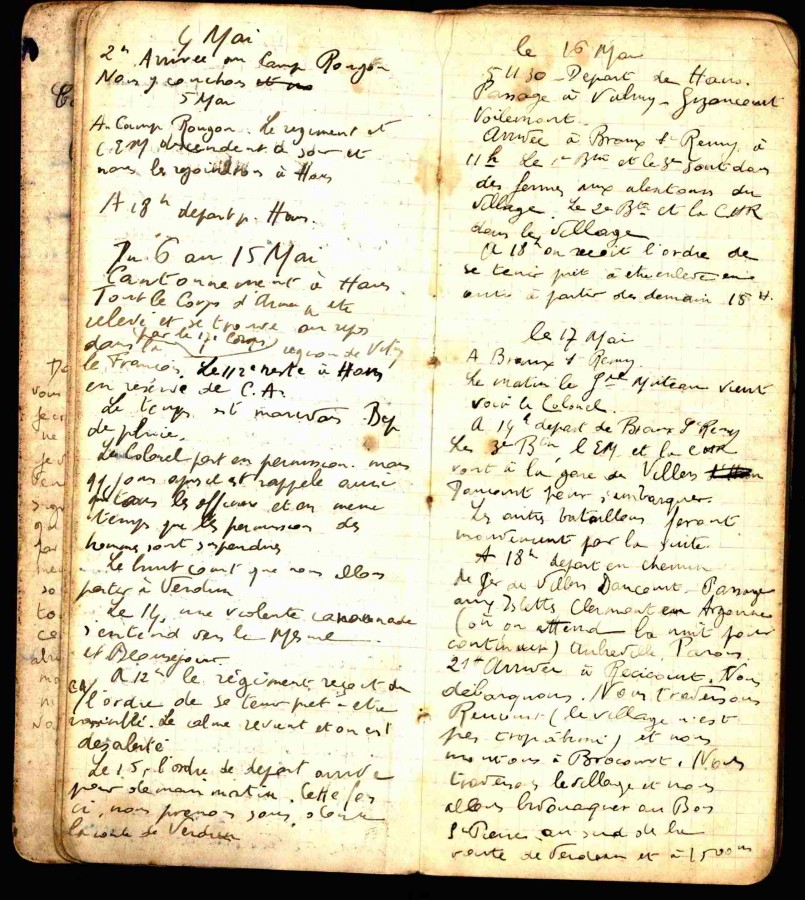 4 Mai
2h Arrivée au Camp Rougon
Nous y couchons
5 Mai
Au Camp Rougon. Le régiment et
l'EM descendent ce soir et
nous les rejoindrons à Hans
A 18h départ p. Hans.
Du 6 au 15 Mai
Cantonnement à Hans
Tout le Corps d'Armée a été
relevé et se trouve au repos
(par le 17e Corps)
dans la région de Vitry
le François. Le 112e reste à Hans
en réserve de C.A.
Le temps est mauvais. Bcp
de pluie.
Le Colonel part en permission. mais
qq jours après il est rappelé ainsi
que tous les officiers et en même
temps que les permissions des
hommes sont suspendues
Le bruit court que nous allons
partir à Verdun
Le 14, une violente canonnade
s'entend vers le Mesnil
et Beauséjour.
A 12h le régiment reçoit du
CA l'ordre de se tenir prêt à être
rassemblé. Le calme revient et on est
désalerté
Le 15, l'ordre de départ arrive
pour demain matin. Cette fois
ci, nous prenons sans doute
la route de Verdun
le 16 Mai
5H30 - Départ de Hans.
Passage à Valmy - Gizaucourt
Voilemont.
Arrivée à Braux St Remy à
11h Le 1er Btn et le 3e sont dans
des fermes aux alentours du
village. Le 2e Btn et la CHR
dans le village
A 18h on reçoit l'ordre de
se tenir prêt à être enlevé en
autos à partir de demain 15H.
le 17 Mai
A Braux St Remy
Le matin le Gral Mateau vient
voir le Colonel.
A 14h départ de Braux St Remy
Les 3e Btn, l'EM et la CHR
vont à la gare de Villers
Daucourt pour s'embarquer.
Les autres bataillons feront
mouvement par la suite.
A 18h départ en chemin
de fer de Villers Daucourt - Passage
aux Islettes Clermont en Argonne
(où on attend la nuit pour
continuer) Aubréville. Parois
21h Arrivée à Récicourt. Nous
débarquons. Nous traversons
Récicourt (le village n'est
pas trop abimé) et nous
montons à Brocourt. Nous
traversons le village et nous
allons bivouaquer au Bois
St Pierre au sud de la
route de Verdun et à 1500m